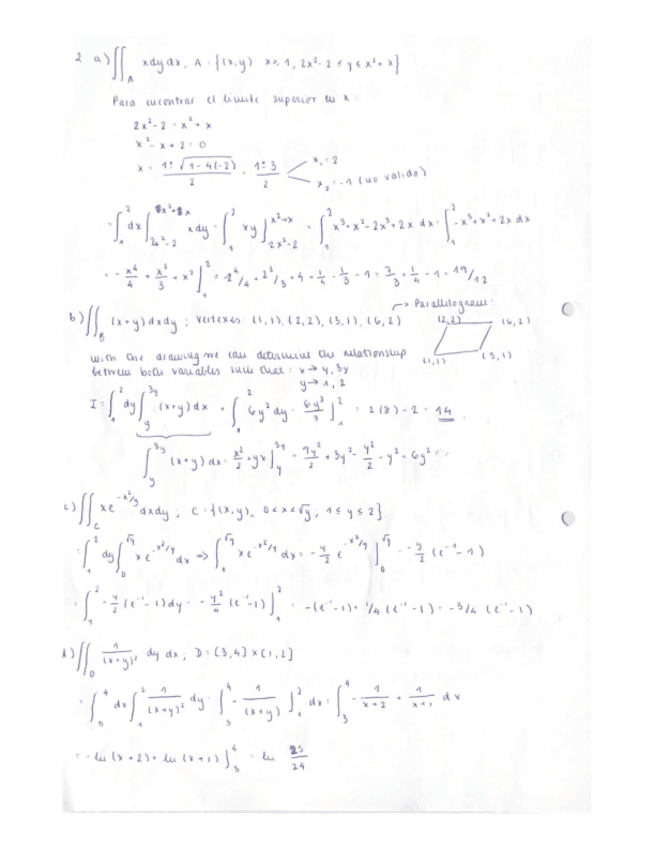 2 a) ∬_A x dy dx, A = {(x,y) x ≥ 1, 2x² - 2 ≤ y ≤ x² + x}
Para encontrar el límite superior en x:
2x² - 2 = x² + x
x² - x + 2 = 0
x = (1 ± √(1 - 4(-2)))/2 = (1 ± 3)/2
x₁ = 2
x₂ = -1 (no valido)
= ∫_1^2 dx ∫_{2x²-2} x dy = ∫_1^2 xy ]_{2x²-2}^{x²+x} = ∫_1^2 x³ + x² - 2x³ + 2x dx = ∫_1^2 -x³ + x² + 2x dx
= -x⁴/4 + x³/3 + x² ]_1^2 = -2⁴/4 + 2³/3 + 4 + 1/4 - 1/3 - 1 = 7/3 + 1/4 - 1 = 19/12
b) ∬_B (x+y) dx dy ; vertexes: (1,1), (2,2), (3,1), (6,2)
→ Parallelogram:
(2,2) (6,2)
(1,1) (3,1)
with the drawing we can determine the relationship
between both variables such that: x → y, 3y
y → 1, 2
I = ∫_1^2 dy ∫_y^{3y} (x+y) dx = ∫_1^2 6y² dy = 6y³/3 ]_1^2 = 2(8) - 2 = 14
∫_y^{3y} (x+y) dx = x²/2 + yx ]_y^{3y} = 9y²/2 + 3y² - y²/2 - y² = 6y²
c) ∬_C xe^{-x²/y} dx dy ; C = {(x,y), 0 < x < √y ; 1 ≤ y ≤ 2}
= ∫_1^2 dy ∫_0^{√y} xe^{-x²/y} dx => ∫_0^{√y} xe^{-x²/y} dx = -y/2 e^{-x²/y} ]_0^{√y} = -y/2 (e⁻¹ - 1)
= ∫_1^2 -y/2 (e⁻¹ - 1) dy = -y²/4 (e⁻¹ - 1) ]_1^2 = -(e⁻¹ - 1) + 1/4 (e⁻¹ - 1) = -3/4 (e⁻¹ - 1)
d) ∬_D 1/(x+y)² dy dx ; D = [3,4] x [1,2]
= ∫^4 dx ∫_1^2 1/(x+y)² dy = ∫_3^4 -1/(x+y) ]_1^2 dx = ∫_3^4 -1/(x+2) + 1/(x+1) dx
= -ln(x+2) + ln(x+1) ]_3^4 = ln 25/24